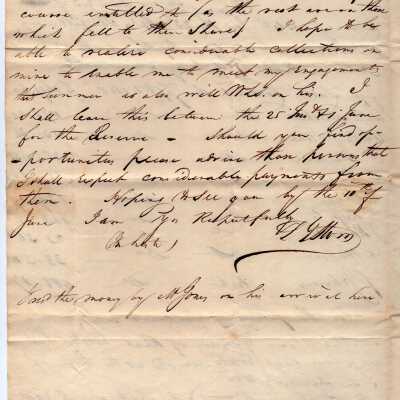 course entitled to (as the rest are in those
which fell to their Share) I hope to be
able to realize considerable collections on
mine to enable me to meet my Engagements
this summer as also will on his. I
Shall leave this between the 25 Inst & 1 June
for the Reserve - Should you find op-
-portunities please advise those persons that
I shall expect considerable payments from
them. Hoping to See you by the 10th of
June I am Yrs Respectfully
(In haste)
the money by Mr Jones on his arrival here